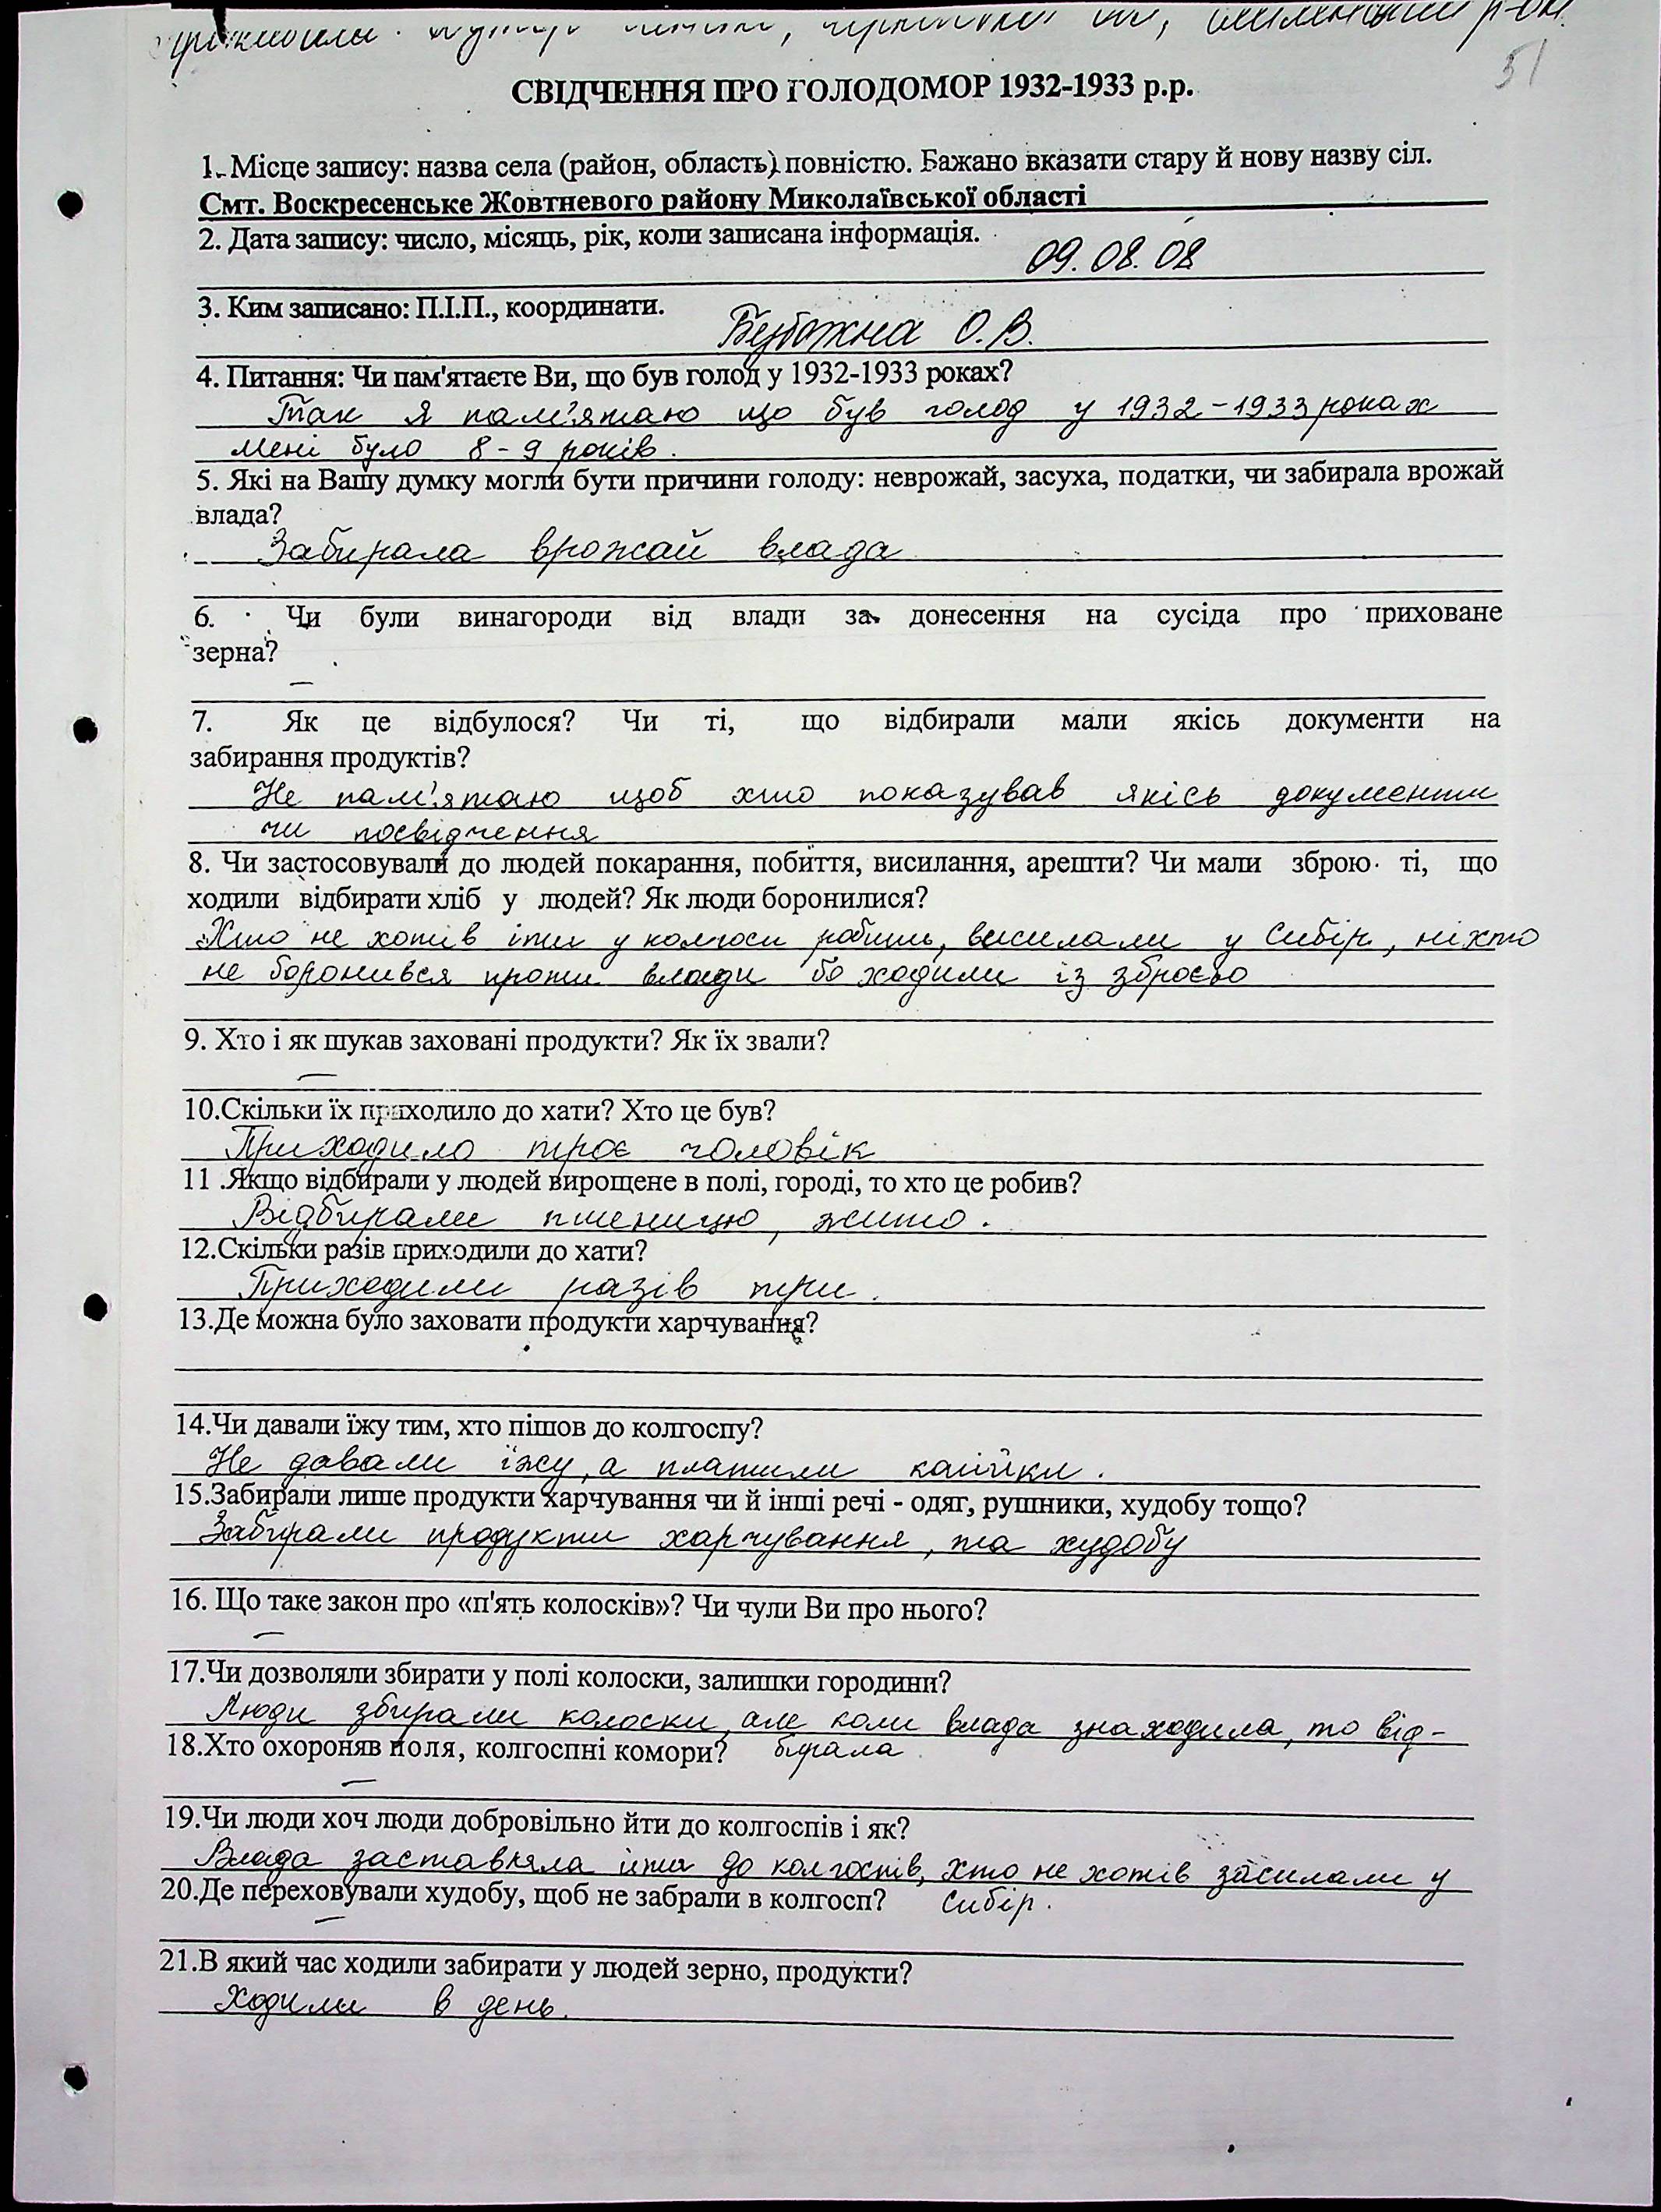 проживала
51
СВІДЧЕННЯ ПРО ГОЛОДОМОР 1932-1933 р.р.
1. Місце запису: назва села (район, область) повністю. Бажано вказати стару й нову назву сіл.
Смт. Воскресенське Жовтневого району Миколаївської області
2. Дата запису: число, місяць, рік, коли записана інформація.
09.08.08
3. Ким записано: П.І.П., координати.
Безбожна О.В.
4. Питання: Чи пам'ятаєте Ви, що був голод у 1932-1933 роках?
Так я пам'ятаю що був голод у 1932-1933 роках
Мені було 8-9 років.
5. Які на Вашу думку могли бути причини голоду: неврожай, засуха, податки, чи забирала врожай
влада?
Забирала врожай влада
6. Чи були винагороди від влади за донесення на сусіда про приховане
зерна?
—
7. Як це відбулося? Чи ті, що відбирали мали якісь документи на
забирання продуктів?
Не пам'ятаю щоб хто показував якісь документи
чи посвідчення
8. Чи застосовували до людей покарання, побиття, висилання, арешти? Чи мали зброю ті, що
ходили відбирати хліб у людей? Як люди боронилися?
Хто не хотів іти у колгосп робить, висилали у Сибір, ніхто
не боронився проти влади бо ходили із зброєю
9. Хто і як шукав заховані продукти? Як їх звали?
—
10.Скільки їх приходило до хати? Хто це був?
Приходило троє чоловік
11 .Якщо відбирали у людей вирощене в полі, городі, то хто це робив?
Відбирали пшеницю, жито.
12.Скільки разів приходили до хати?
Приходили разів три.
13.Де можна було заховати продукти харчування?
14.Чи давали їжу тим, хто пішов до колгоспу?
Не давали їжу, а платили копійки.
15.Забирали лише продукти харчування чи й інші речі - одяг, рушники, худобу тощо?
Забирали продукти харчування, та худобу
16. Що таке закон про «п'ять колосків»? Чи чули Ви про нього?
—
17.Чи дозволяли збирати у полі колоски, залишки городини?
Люди збирали колоски, але коли влада знаходила, то від-
18.Хто охороняв поля, колгоспні комори? бирала
—
19.Чи люди хоч люди добровільно йти до колгоспів і як?
Влада заставляла іти до колгоспів, хто не хотів засилали у
20.Де переховували худобу, щоб не забрали в колгосп? Сибір.
—
21.В який час ходили забирати у людей зерно, продукти?
Ходили в день.